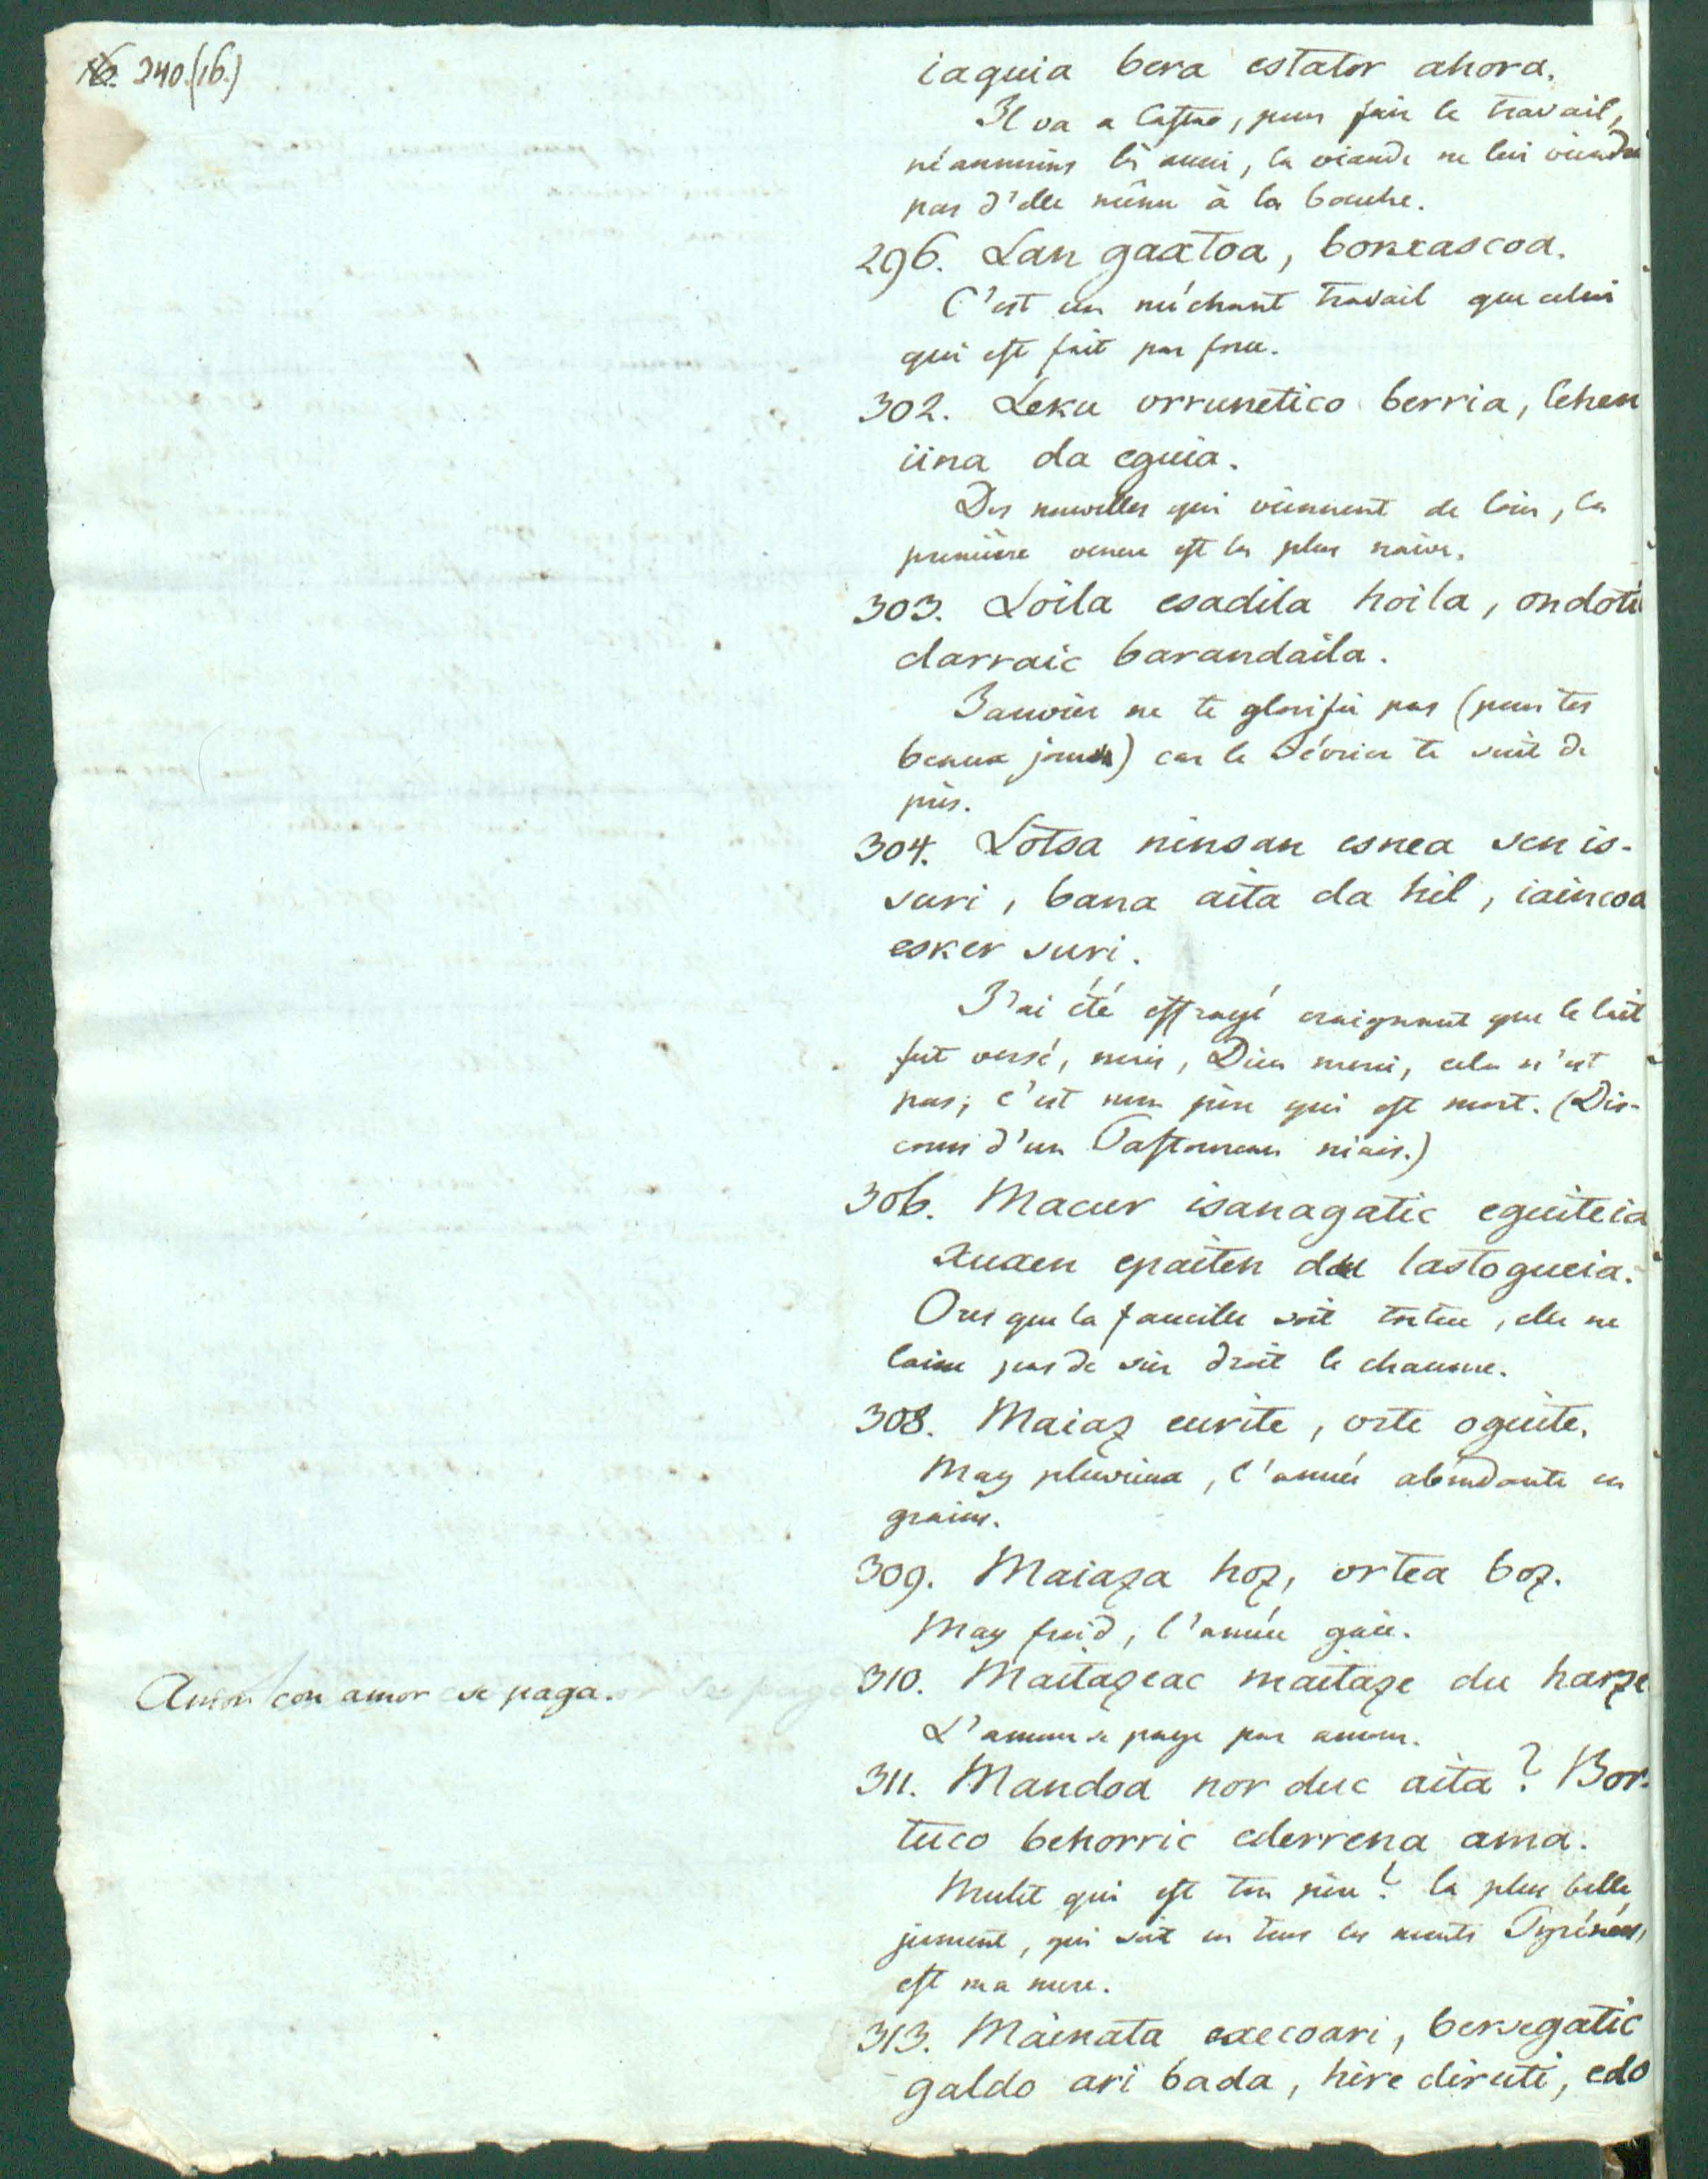 340.(16.)
iaquia bera estator ahora.
Il va a Castro, pour fair le travail,
néanmoins là aussi, la viande ne lui viendra
pas d'elle même à la bouche.
296. Lan gaxtoa, borxascoa.
C'est un méchant travail que celui
qui est fait par force.
302. Leku orrunetico berria, lehen
iina da eguia.
Des nouvelles qui viennent de loin, la
première venue est la plus
303. Loila esadila hoila, ondoti
darraic barandaila.
Janvier ne te glorifie pas (pour tes
beaux jours) car le Février te suit de
près.
304. Lotsa ninsan esnea sen is-
suri, bana aita da hil, iaincoa
esker suri.
J'ai été effrayé craignant que le lait
fut versé, mais, Dieu merci, cela n'est
pas; c'est mon père qui est mort. (Dis-
cours d'un Pastoureau niais.)
306. Macur isanagatic eguiteia
xuxen epaiten du lastogueia.
Ores que la faucille soit tortue, elle ne
laisse pas de sier droit le chaume.
308. Maiaz eurite, orte oguite.
May pluvieux, l'année abondante en
grains.
309. Maiaza hoz, ortea boz.
May froid, l'année gaie.
Amor con amor se paga.
310. Maitazeac maitaze du harze
L'amour se paye par amour.
311. Mandoa nor duc aita? Bor-
tuco behorric ederrena ama.
Mulet qui est ton père? la plus belle
jument, qui soit en tous les monts Pyrénées,
est ma mere.
313. Mainata execoari, bersegatic
galdo ari bada, hire diruti, edo